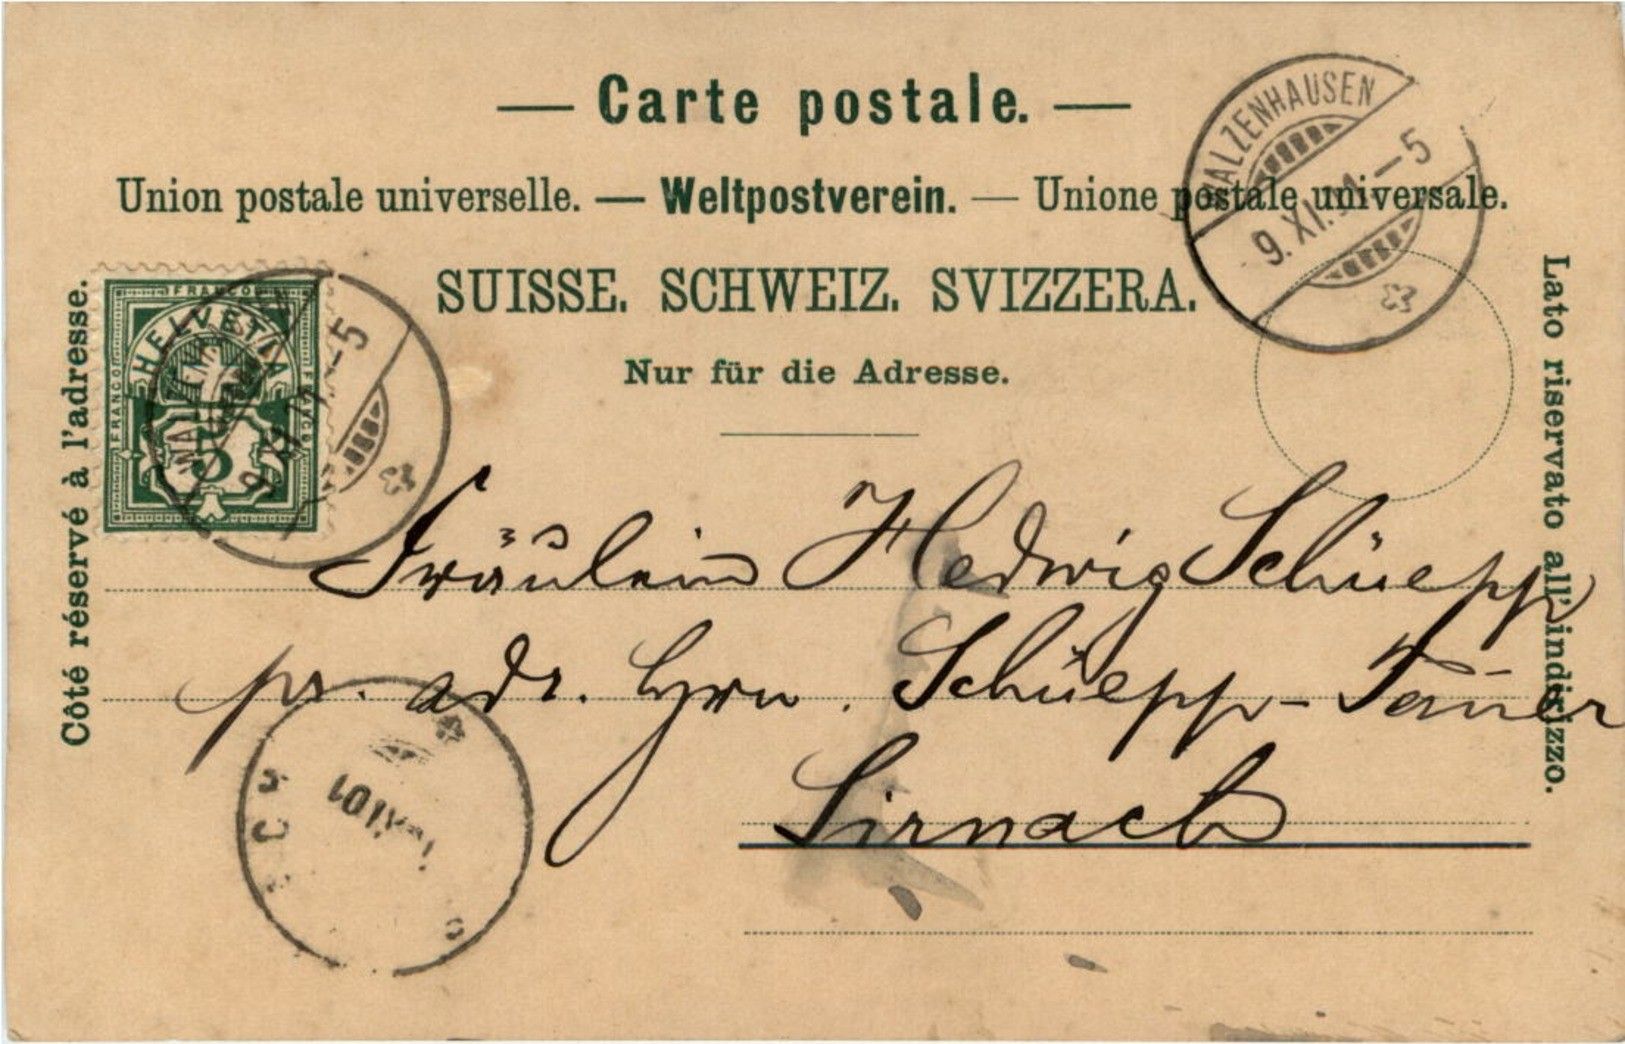 — Carte postale. —
Union postale universelle. — Weltpostverein. — Unione postale universale.
SUISSE. SCHWEIZ. SVIZZERA.
Nur für die Adresse.
Côté réservé à l'adresse.
Lato riservato all' indirizzo.
WALZENHAUSEN
9. XI. 01 - 5
FRANCO
HELVETIA
FRANCO
FRANCO
5
WALZENH
9. XI. - 5
Fräulein Hedwig Schüepp
pr. adr. Hrn. Schüepp-
Sirnach
XI 01